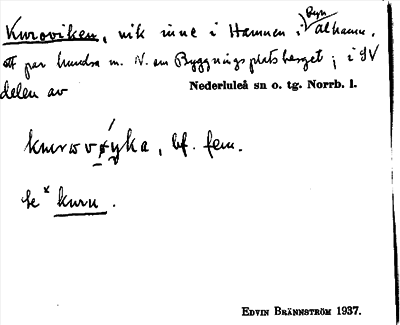 Kuroviken, vik inne i Hamnen i Byn Alhamn,
ett par hundra m. N. om Byggningsplatsberget; i SV
delen av Nederluleå sn o. tg. Norrb. l.
kurωvǿ̨yka, bf. fem.
Se x kuru.
EDVIN BRÄNNSTRÖM 1937.